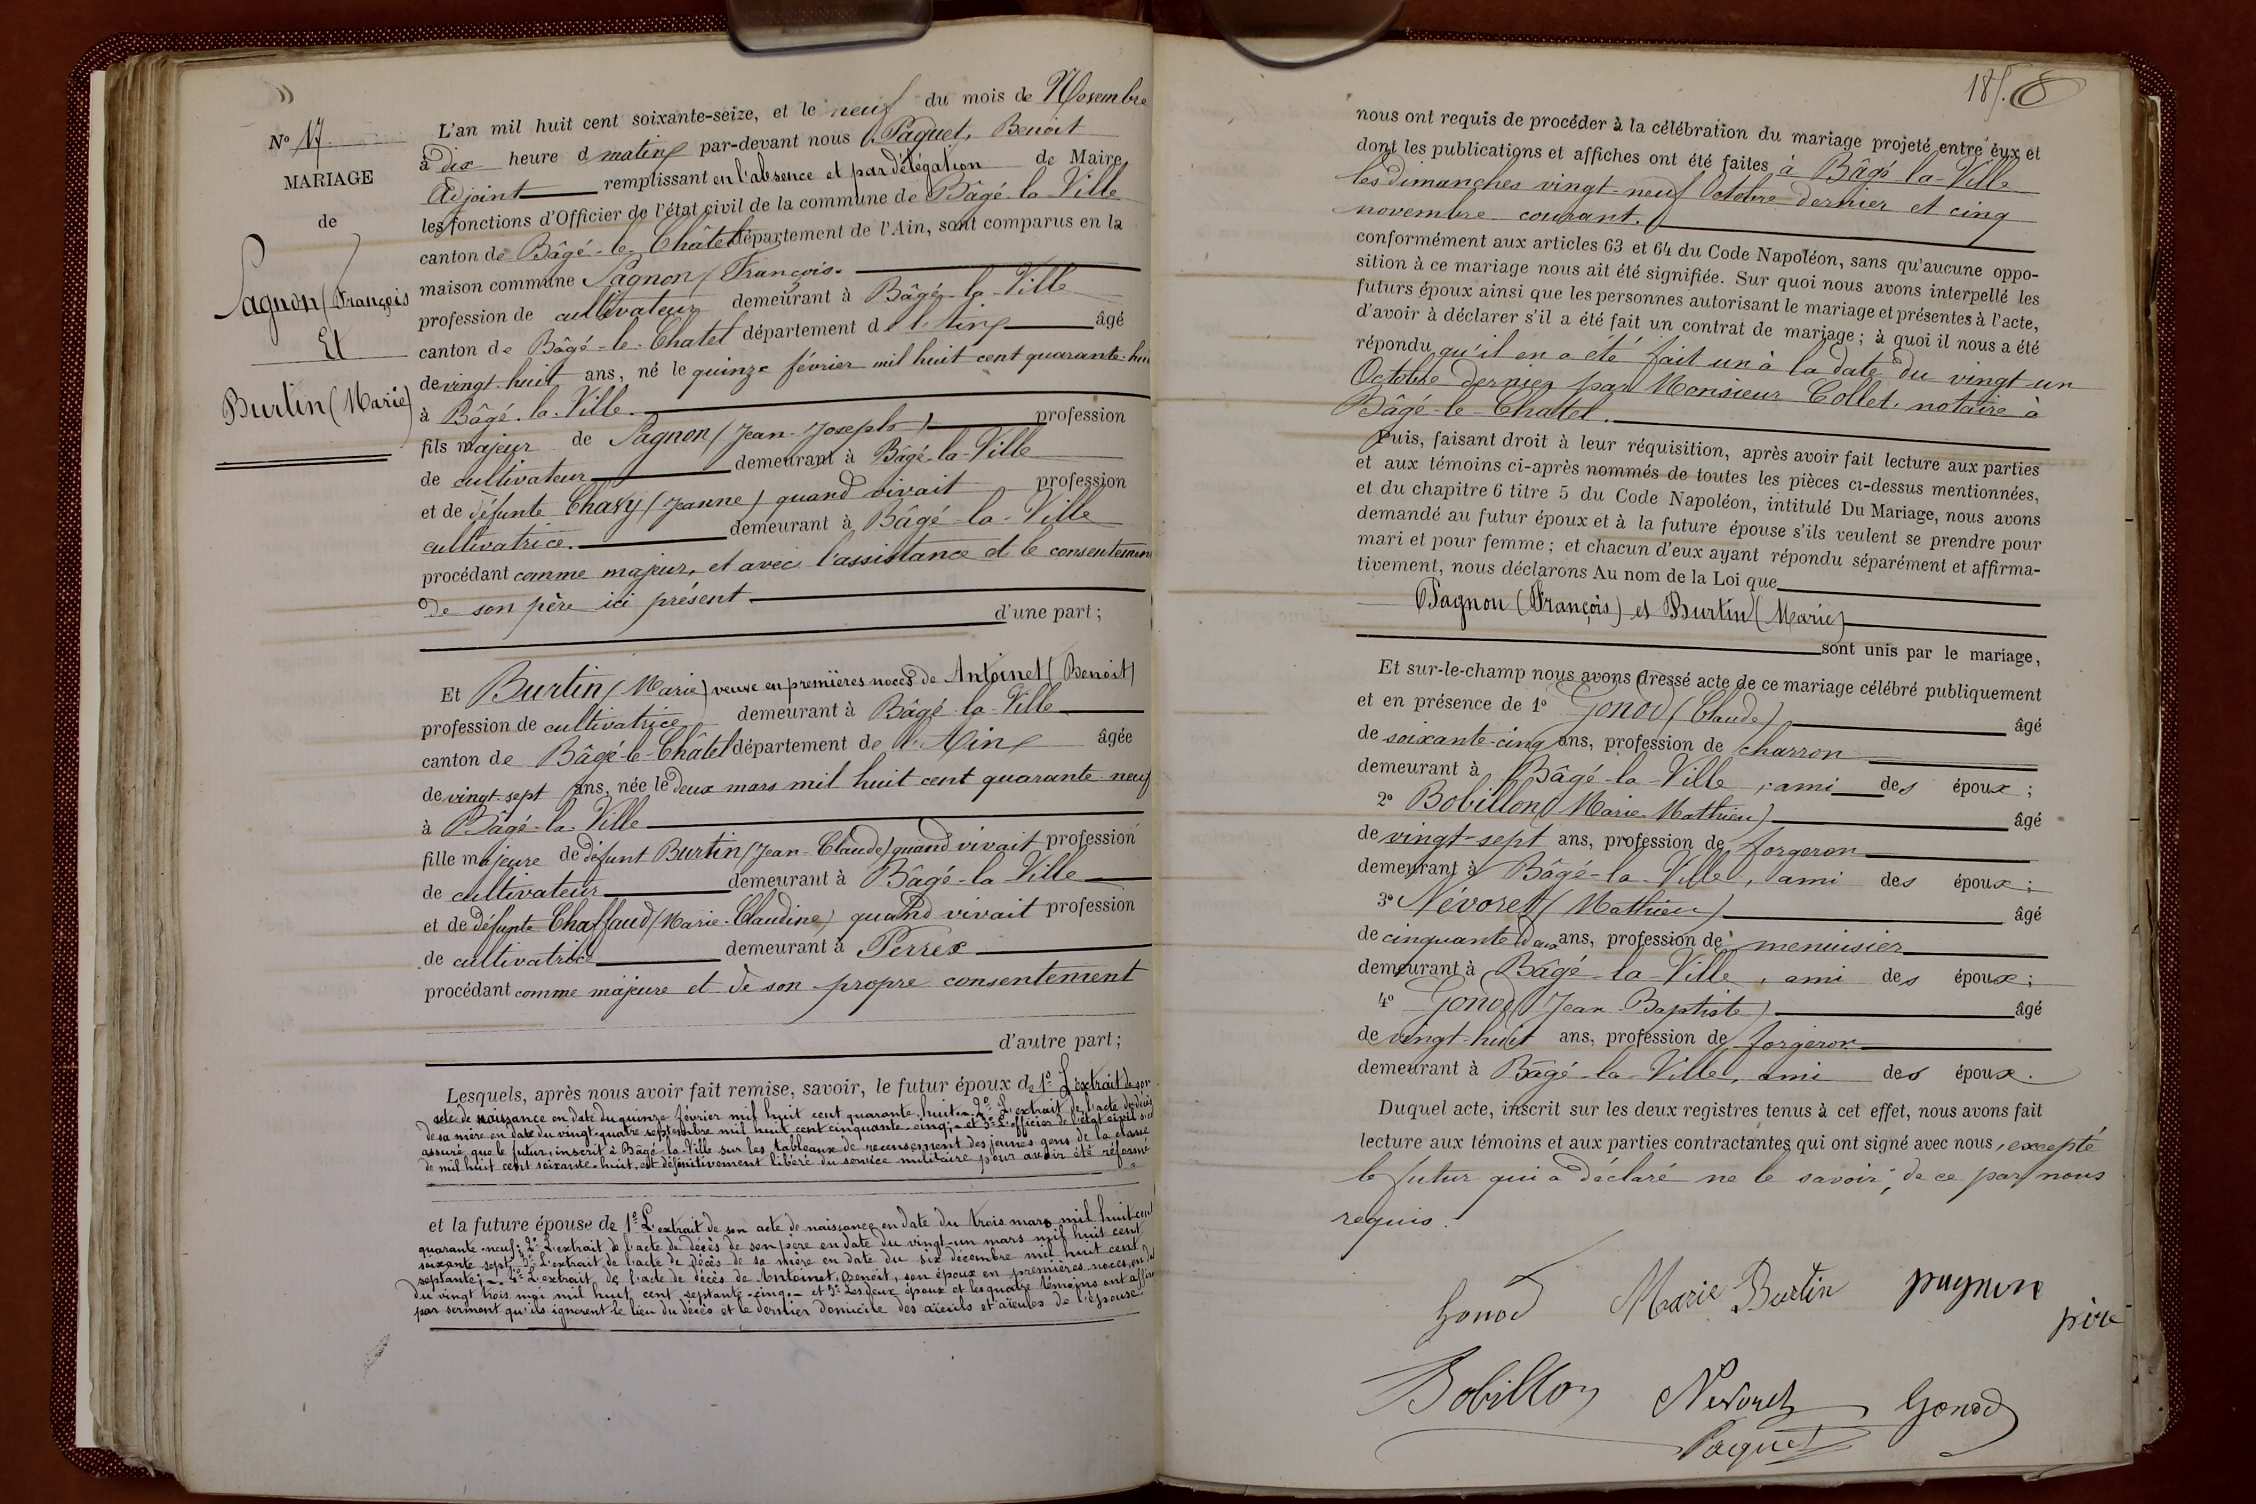 Nº 17.
MARIAGE
de
Pagnon (François
Et
Burtin (Marie)
L'an mil huit cent soixante-seize, et le neuf du mois de Novembre
à dix heure d matin par-devant nous Paquet, Benoit
Adjoint remplissant en l'absence et par délégation de Maire
les fonctions d'Officier de l'état civil de la commune de Bâgé-la-Ville
canton de Bâgé-le-Châtel département de l'Ain, sont comparus en la
maison commune Pagnon (François.
profession de cultivateur demeurant à Bâgé-la-Ville
canton de Bâgé-le-Chatel département de l'Ain âgé
de vingt-huit ans, né le quinze février mil huit cent quarante-huit
à Bâgé-la-Ville.
fils majeur de Pagnon (Jean-Joseph) profession
de cultivateur demeurant à Bâgé-la-Ville
et de défunte Chavy (Jeanne) quand vivait profession
cultivatrice. demeurant à Bâgé-la-Ville
procédant comme majeur, et avec l'assistance et le consentement
de son père ici présent
d'une part;
Et Burtin (Marie) veuve en premières noces de Antoinet (Benoit)
profession de cultivatrice demeurant à Bâgé-la-Ville
canton de Bâgé-le-Châtel département de l'Ain âgée
de vingt-sept ans, née le deux mars mil huit cent quarante-neuf
à Bâgé-la-Ville
fille majeure de défunt Burtin (Jean-Claude) quand vivait profession
de cultivateur demeurant à Bâgé-la-Ville
et de défunte Chaffaud (Marie-Claudine) quand vivait profession
de cultivatrice demeurant à Perrex
procédant comme majeure et de son propre consentement
d'autre part;
Lesquels, après nous avoir fait remise, savoir, le futur époux de 1º L'extrait de son
acte de naissance en date du quinze février mil huit cent quarante-huit; 2º L'extrait de l'acte de décès
de sa mère en date du vingt-quatre septembre mil huit cent cinquante-cinq; et 3º L'officier de l'état civil s'est
assuré que le futur, inscrit à Bâgé-la-Ville sur les tableaux de recensement des jeunes gens de la classe
de mil huit cent soixante-huit est définitivement libéré du service militaire pour avoir été réformé
et la future épouse de 1º L'extrait de son acte de naissance en date du trois mars mil huit cent
quarante-neuf; 2º L'extrait de l'acte de décès de son père en date du vingt-un mars mil huit cent
soixante sept; 3º L'extrait de l'acte de décès de sa mère en date du six décembre mil huit cent
septante; 4º L'extrait de l'acte de décès de Antoinet, Benoit, son époux en premières noces, en date
du vingt trois mai mil huit cent septante-cinq. et 5º Les deux époux et les quatre témoins ont affirmé
par serment qu'ils ignorent le lieu du décès et le dernier domicile des aïeuls et aïeules de l'épouse
18
nous ont requis de procéder à la célébration du mariage projeté entre eux et
dont les publications et affiches ont été faites à Bâgé-la-Ville
les dimanches vingt-neuf Octobre dernier et cinq
novembre courant.
conformément aux articles 63 et 64 du Code Napoléon, sans qu'aucune oppo-
sition à ce mariage nous ait été signifiée. Sur quoi nous avons interpellé les
futurs époux ainsi que les personnes autorisant le mariage et présentes à l'acte,
d'avoir à déclarer s'il a été fait un contrat de mariage; à quoi il nous a été
répondu qu'il en a été fait un à la date du vingt-un
Octobre dernier par Monsieur Collet, notaire à
Bâgé-le-Chatel.
Puis, faisant droit à leur réquisition, après avoir fait lecture aux parties
et aux témoins ci-après nommés de toutes les pièces ci-dessus mentionnées,
et du chapitre 6 titre 5 du Code Napoléon, intitulé Du Mariage, nous avons
demandé au futur époux et à la future épouse s'ils veulent se prendre pour
mari et pour femme; et chacun d'eux ayant répondu séparément et affirma-
tivement, nous déclarons Au nom de la Loi que
Pagnon (François) et Burtin (Marie)
sont unis par le mariage,
Et sur-le-champ nous avons dressé acte de ce mariage célébré publiquement
et en présence de 1º Gonod (Claude) âgé
de soixante-cinq ans, profession de charron
demeurant à Bâgé-la-Ville, ami des époux;
2º Bobillon (Marie-Mathieu) âgé
de vingt-sept ans, profession de forgeron
demeurant à Bâgé-la-Ville, ami des époux;
3º Névoret (Mathieu) âgé
de cinquante deux ans, profession de menuisier
demeurant à Bâgé-la-Ville, ami des époux;
4º Gonod (Jean-Baptiste) âgé
de vingt-huit ans, profession de forgeron
demeurant à Bâgé-la-Ville, ami des époux.
Duquel acte, inscrit sur les deux registres tenus à cet effet, nous avons fait
lecture aux témoins et aux parties contractantes qui ont signé avec nous, excepté
le futur qui a déclaré ne le savoir, de ce par nous
requis.
Gonod Marie Burtin pagnon
père
Bobillon Nevoret Gonod
Paquet